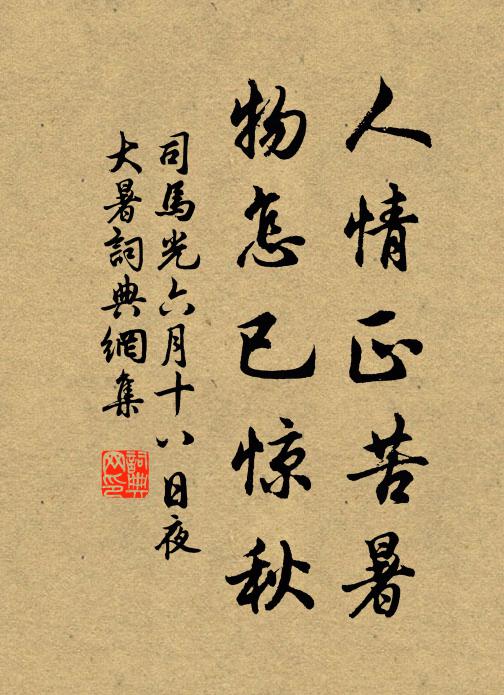 人情正苦暑
物怎已惊秋
司馬光六月十八日夜
大暑詞典網集
詞典
网印